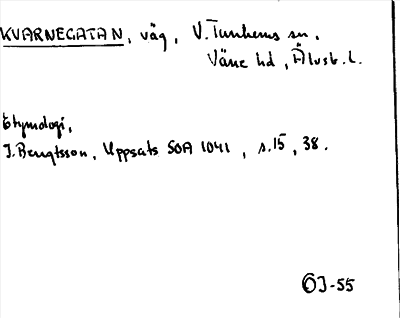 KVARNEGATAN, väg, V. Tunhems sn.
Väne hd, Älvsb. l.
Etymologi,
J. Bengtsson, Uppsats SOA 1041, s. 15, 38.
OJ-55